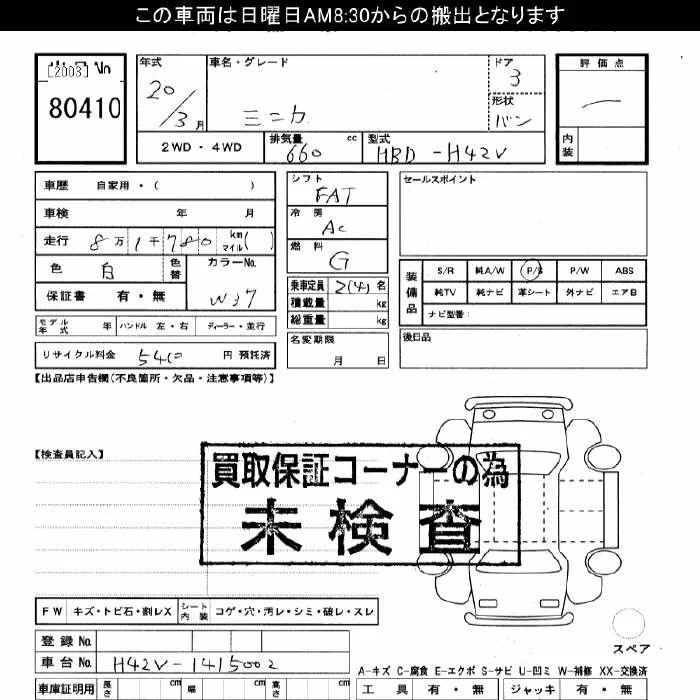 この車両は日曜日AM8:30からの搬出となります
[2003]
80410
年式
20/3月
車名・グレード
ミニカ
ドア
3
形状
バン
評価点
内装
2WD・4WD
排気量
660 cc
型式
HBD-H42V
車歴 自家用・( )
車検 年 月
走行 8万1千780 km マイル( )
色 白 色替
カラーNo.
W37
保証書 有・無
モデル年式 年 ハンドル 左・右 ディーラー・並行
リサイクル料金 5410 円 預託済
シフト
FAT
冷房
AC
燃料
G
乗車定員 2(4) 名
積載量 kg
総重量 kg
名変期限
月 日
セールスポイント
装備品
S/R 純A/W P/S P/W ABS
純TV 純ナビ 革シート 外ナビ エアB
ナビ型番:
後日品
【出品店申告欄(不良箇所・欠品・注意事項等)】
【検査員記入】
買取保証コーナーの為
未検査
FW キズ・トビ石・割レX シート内装 コゲ・穴・汚レ・シミ・破レ・スレ
スペア
登録No.
車台No. H42V-1415002
車庫証明用 長さ cm 幅 cm 高さ cm
A-キズ C-腐食 E-エクボ S-サビ U-凹ミ W-補修 XX-交換済
工具 有・無 ジャッキ 有・無